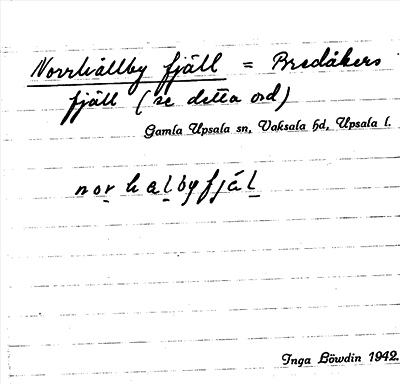 Norrhällby fjäll = Bredåkers
fjäll (se detta ord)
Gamla Upsala sn, Vaksala hd, Upsala l.
nor halbyfjäl
Inga Löwdin 1942.